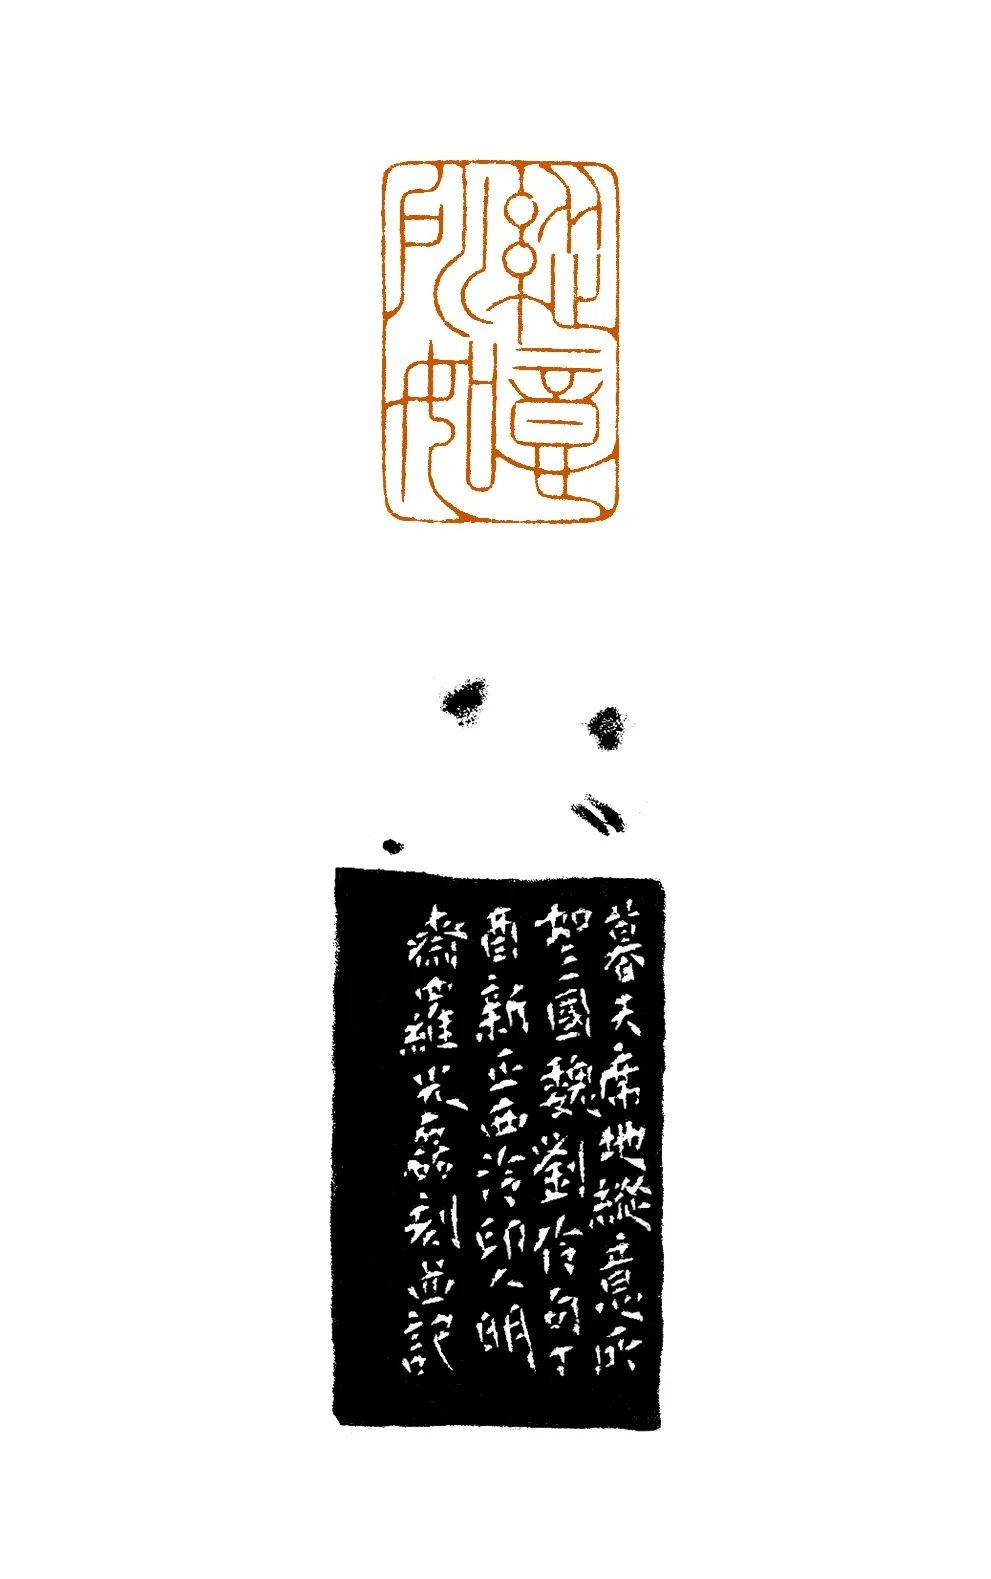 縱意
所如
幕天席地縱意所
如三國魏劉伶句丁
酉新正西泠印人明
齋羅光磊刻並記